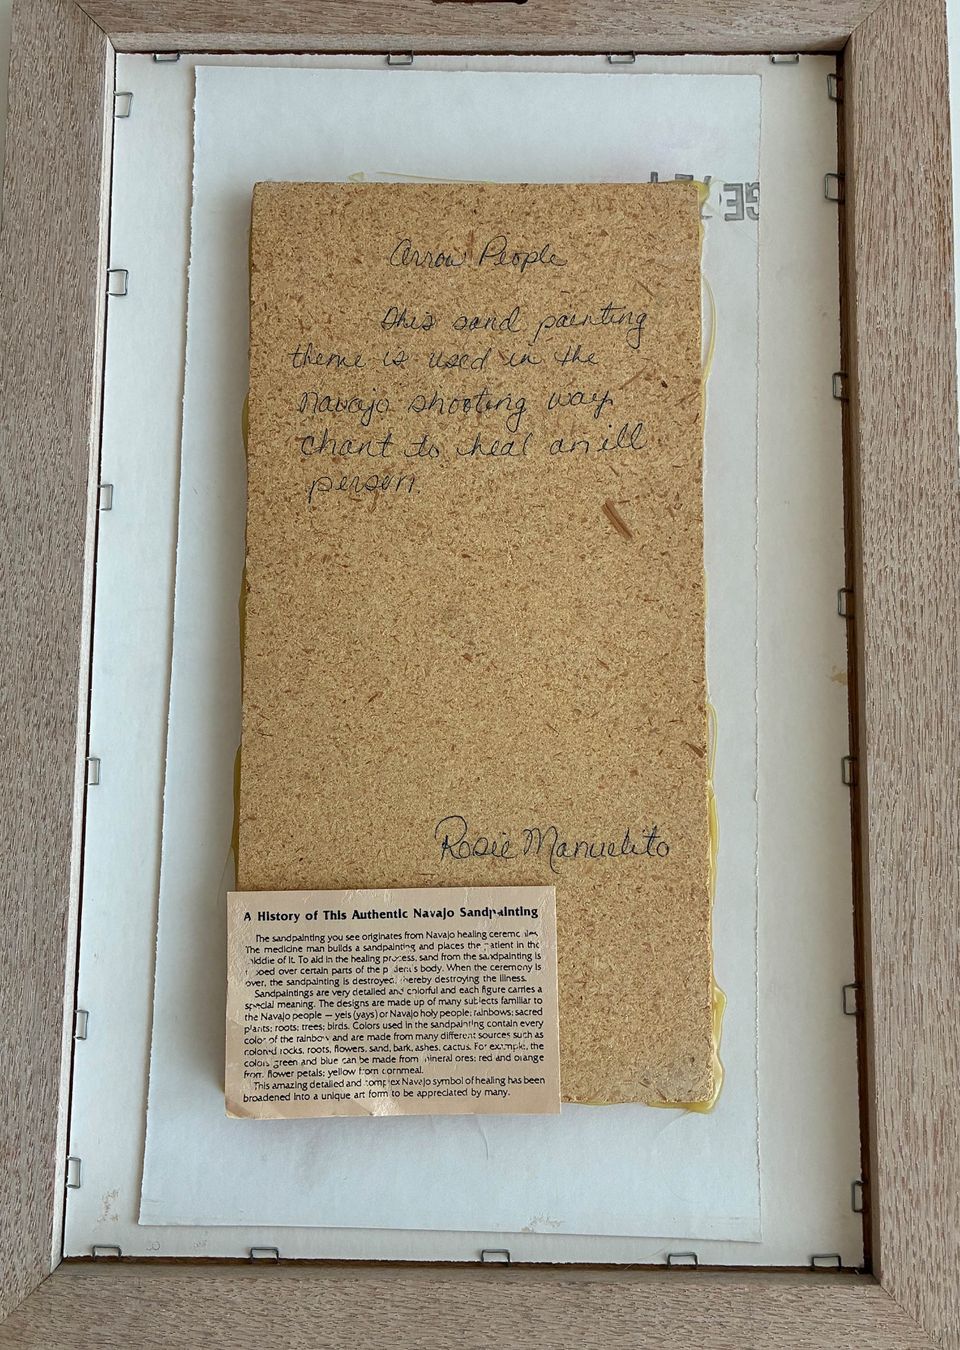 Arrow People
This sand painting
theme is used in the
Navajo shooting way
chant to heal an ill
person.
Rosie Manuelito
A History of This Authentic Navajo Sandpainting
The sandpainting you see originates from Navajo healing ceremonies.
The medicine man builds a sandpainting and places the patient in the
middle of it. To aid in the healing process, sand from the sandpainting is
over certain parts of the patient's body. When the ceremony is
over, the sandpainting is destroyed, thereby destroying the illness.
Sandpaintings are very detailed and colorful and each figure carries a
special meaning. The designs are made up of many subjects familiar to
the Navajo people — yeis (yays) or Navajo holy people; rainbows; sacred
plants; roots; trees; birds. Colors used in the sandpainting contain every
color of the rainbow and are made from many different sources such as
colored rocks, roots, flowers, sand, bark, ashes, cactus. For example, the
colors green and blue can be made from mineral ores; red and orange
from flower petals; yellow from cornmeal.
This amazing detailed and complex Navajo symbol of healing has been
broadened into a unique art form to be appreciated by many.